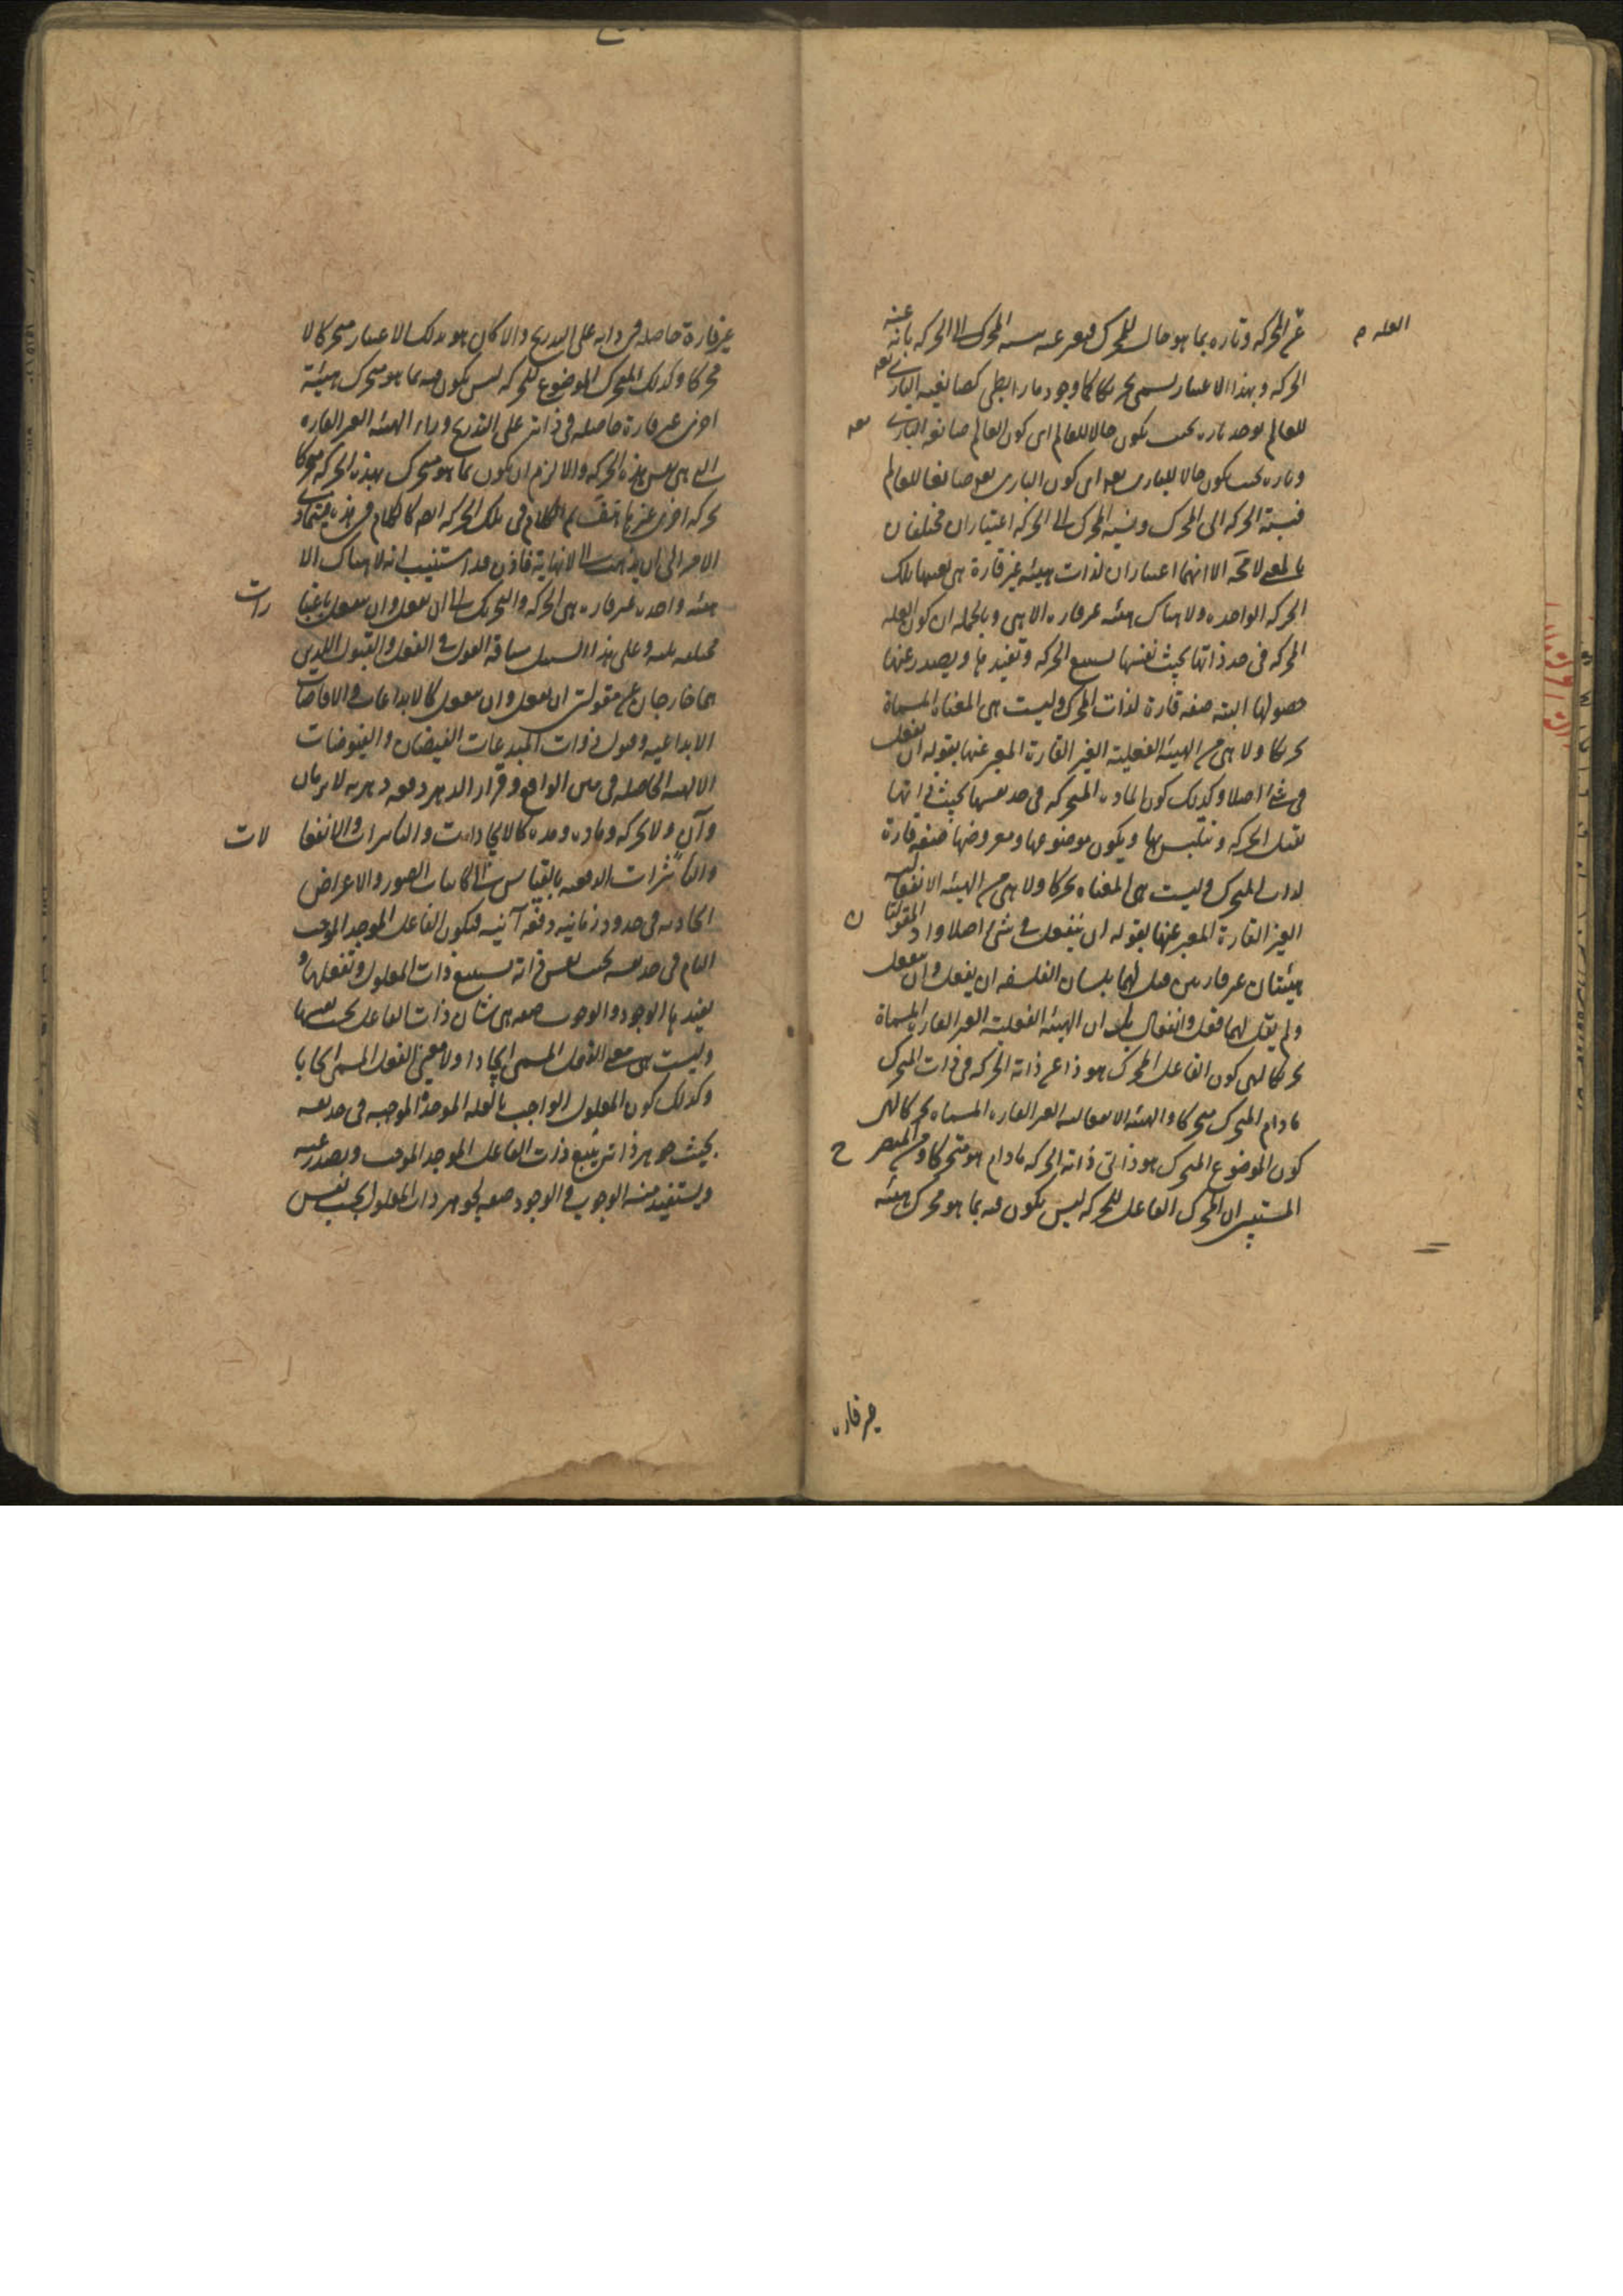 العله م
عن الحركه وتاره بما هو حال للمحرك فيعبر عنه بنسبه المحرك الى الحركه بانه عنه
الحركه وبهذا الاعتبار يسمى تحريكا كما وجود ما رابطى كصانعيه البارى تعـ
للعالم يوجد تاره بحيث يكون حالا للعالم اى كون العالم صانعه البارى تعـ
وتاره بحيث يكون حالا للبارى تعـ اى كون البارى تعـ صانعا للعالم
فنسبة الحركه الى المحرك ونسبة المحرك الى الحركه اعتباران مختلفان
بالمعنى لا محه الا انهما اعتباران لذات هيئه غير قارة هى بعينها تلك
الحركه الواحده ولا هناك هيئه غير قاره الا هى وبالجمله ان كون العله
المحركه فى حد ذاتها بحيث نفسها الحركه وتفيدها ويصدر عنها
حصولها البته صفه قارة لذات المحرك وليست هى المعناه المسماة
تحريكا ولا هى من الهيئه الفعليه الغير القارة المعبر عنها بقوله ان يفعل
فى شئ اصلا وكذلك كون الماده المتحركه فى حد نفسها بحيث ذاتها
تقبل الحركه وتتلبس بها ويكون موضوعها ومعروضها صفه قارة
لذات المتحرك وليست هى المعناه تحركا ولا هى من الهيئه الانفعاليه
الغير القارة المعبر عنها بقوله ان ينفعل فى شئ اصلا واذ المقولتان
هيئتان غير قارتين قيل لهما بلسان الفلسفه ان يفعل وان ينفعل
ولم يقل لهما فعل وانفعال بل ان الهيئه الفعليه الغير القاره المسماة
تحريكا لهى كون الفاعل المحرك هو ذا عن ذاته الحركه فى ذات المتحرك
ما دام المتحرك متحركا والهيئه الانفعاليه الغير القاره المسماه تحركا لهى
كون الموضوع المتحرك هو ذا فى ذاته الحركه ما دام هو متحركا ومن المتضح
المستبين ان المحرك الفاعل للحركه ليس يكون فيه بما هو محرك هيئه
غير قاره
غير قارة حاصله فى ذاته على التدريج والا كان هو بذلك الاعتبار متحركا لا
محركا وكذلك المتحرك الموضوع للحركه ليس يكون فيه بما هو متحرك هيئة
اخرى غير قارة حاصله فى ذاته على التدريج وراء الهيئه الغير القاره
التى هى نفس هذه الحركه والا لزم ان يكون بما هو متحرك بهذه الحركه متحركا
بحركه اخرى غيرها هف ثم الكلام فى تلك الحركه ايضا كالكلام فى هذه فيتمادى
الامر الى ان يذهب الى لا نهاية فاذن قد استتب انه لا هناك الا
هيئه واحده غير قاره هى الحركه والتحريك الى ان يفعل وان ينفعل باعتبارات
مختلفه ثلثه وعلى هذا السبيل سياقه القول فى الفعل والقبول اللذين
هما خارجان عن مقولتى ان يفعل وان ينفعل كالابداعات والافاضات
الابداعيه وقبول ذوات المبدعات الفيضان والفيوضات
الالهيه الحاصله فى متن الواقع وقرار الدهر دفعه دهريه لا بزمان
وآن ولا بحركه وماده ومده كالايجادات والتاثيرات والانفعالات
والتأثرات الدفعيه بالقياس الى الكاينات الصور والاعراض
الحادثه فى حدود زمانيه دفعه آنيه فيكون الفاعل الموجد الموجب
التام فى حد نفسه بحيث نفس ذاته ذات المعلول وتفعلها و
يفيدها الوجود والوجوب صفه هى شان ذات الفاعل بحسب نفسها
وليست هى معنى الفعل المسمى ايجادا ولا معنى الفعل المسمى ايجابا
وكذلك كون المعلول الواجب بالعله الموجدة الموجبه فى حد نفسه
بحيث جوهر ذاته يتبع ذات الفاعل الموجد الموجب ويصدر عنه
ويستفيد منه الوجوب والوجود صفه لجوهر ذات المعلول بحسب نفس